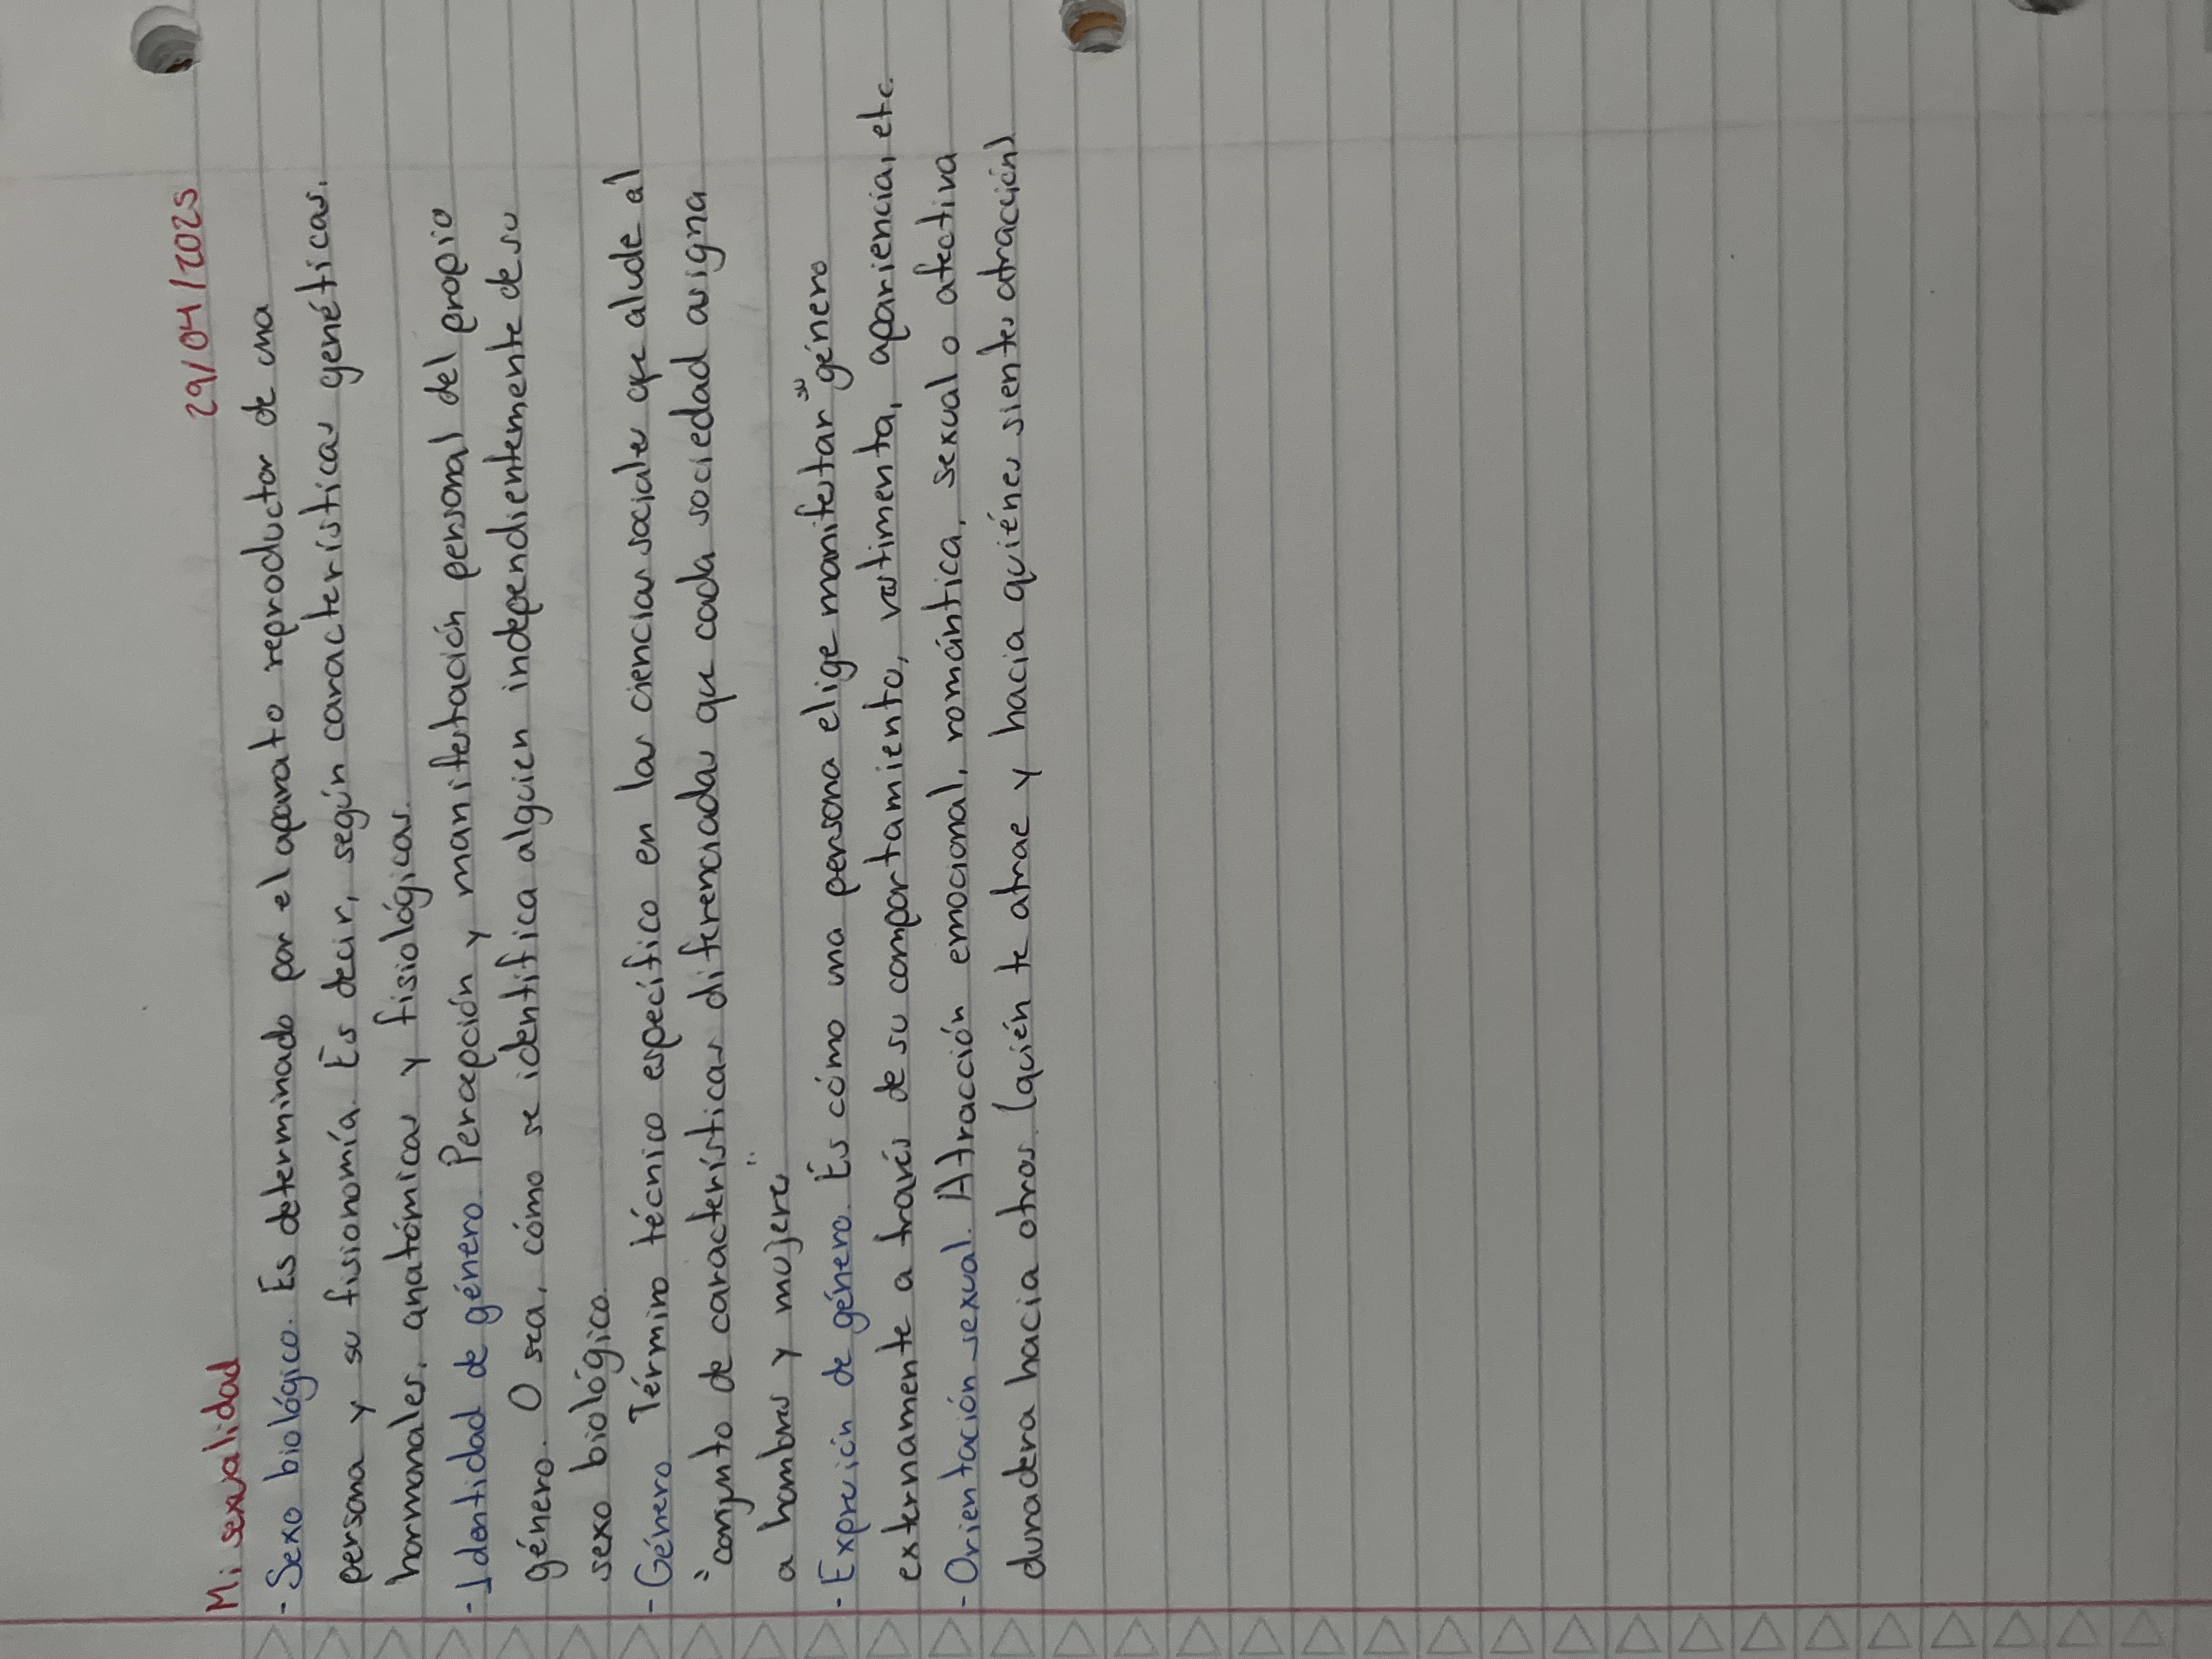 Mi sexualidad 29/04/2025
- Sexo biológico. Es determinado por el aparato reproductor de una
persona y su fisionomía. Es decir, según características genéticas,
hormonales, anatómicas y fisiológicas.
- Identidad de género. Percepción y manifestación personal del propio
género. O sea, cómo se identifica alguien independientemente de su
sexo biológico.
- Género. Término técnico específico en las ciencias sociales que alude al
"conjunto de características diferenciadas que cada sociedad asigna
a hombres y mujeres".
- Expresión de género. Es cómo una persona elige manifestar su género
externamente a través de su comportamiento, vestimenta, apariencia, etc.
- Orientación sexual. Atracción emocional, romántica, sexual o afectiva
duradera hacia otros (quién te atrae y hacia quiénes sientes atracción)